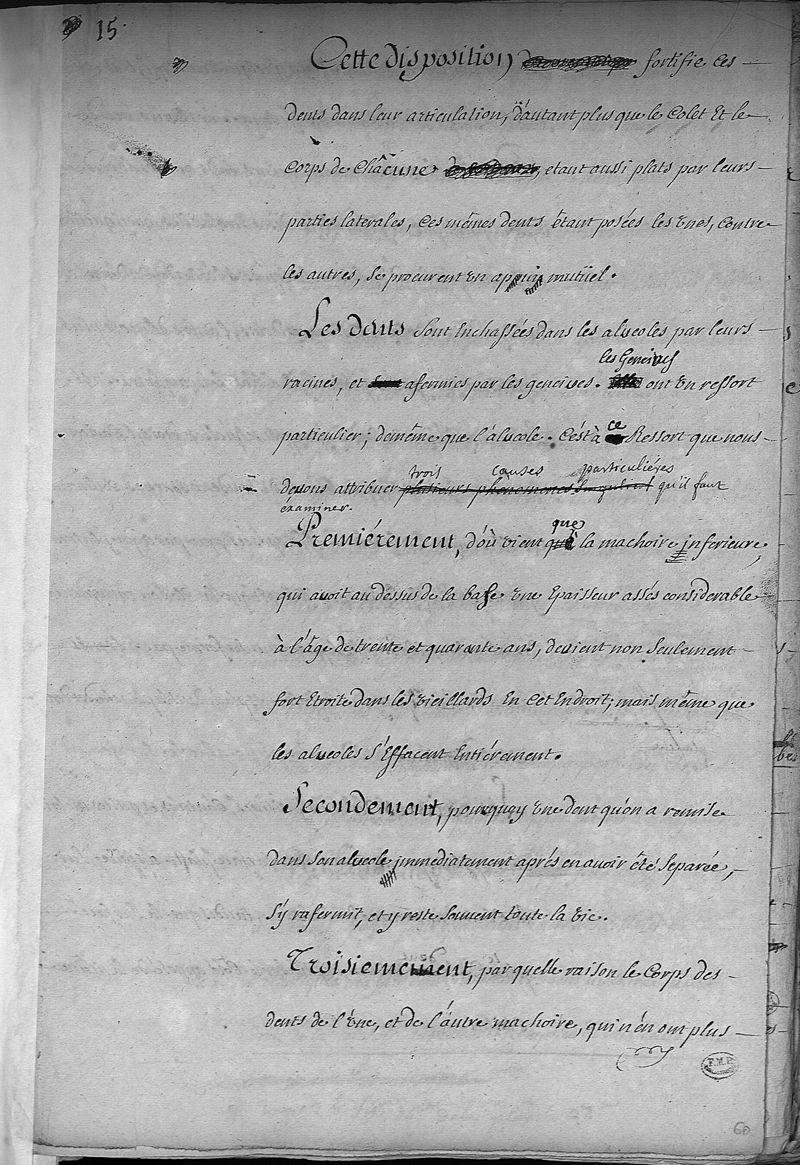 15
Cette disposition fortifie ces
dents dans leur articulation, d'autant plus que le Colet Et le
Corps de Châcune étant aussi plats par leurs
parties laterales, Ces mêmes dents étant posées les Unes, Contre
les autres, Se procurent Un appuy mutüel.
Les dents Sont Enchassées dans les alveoles par leurs
les Gencives
racines, et afermies par les gencives. ont Un ressort
particulier; de même que l'alveole. C'est à ce Ressort que nous
trois causes particuliéres
devons attribuer plusieurs phenomenes qu'il faut
éxaminer.
que
Premiérement, d'où vient que la machoire inferieure,
qui avoit au dessus de la base Une Epaisseur assés considerable
à l'âge de trente et quarante ans, devient non Seulement
fort Etroite dans les vieillards En Cet Endroit; mais même que
les alveoles S'Effacent Entiérement.
Secondement, pourquoy Une dent qu'on a remise
dans Son alveole immediatement aprés en avoir été Separée,
S'y rafermit, et y reste Souvent toute la vie.
Troisiemement, par quelle raison le Corps des
dents de l'Une, et de l'autre machoire, qui n'en ont plus
F.M.P.
60